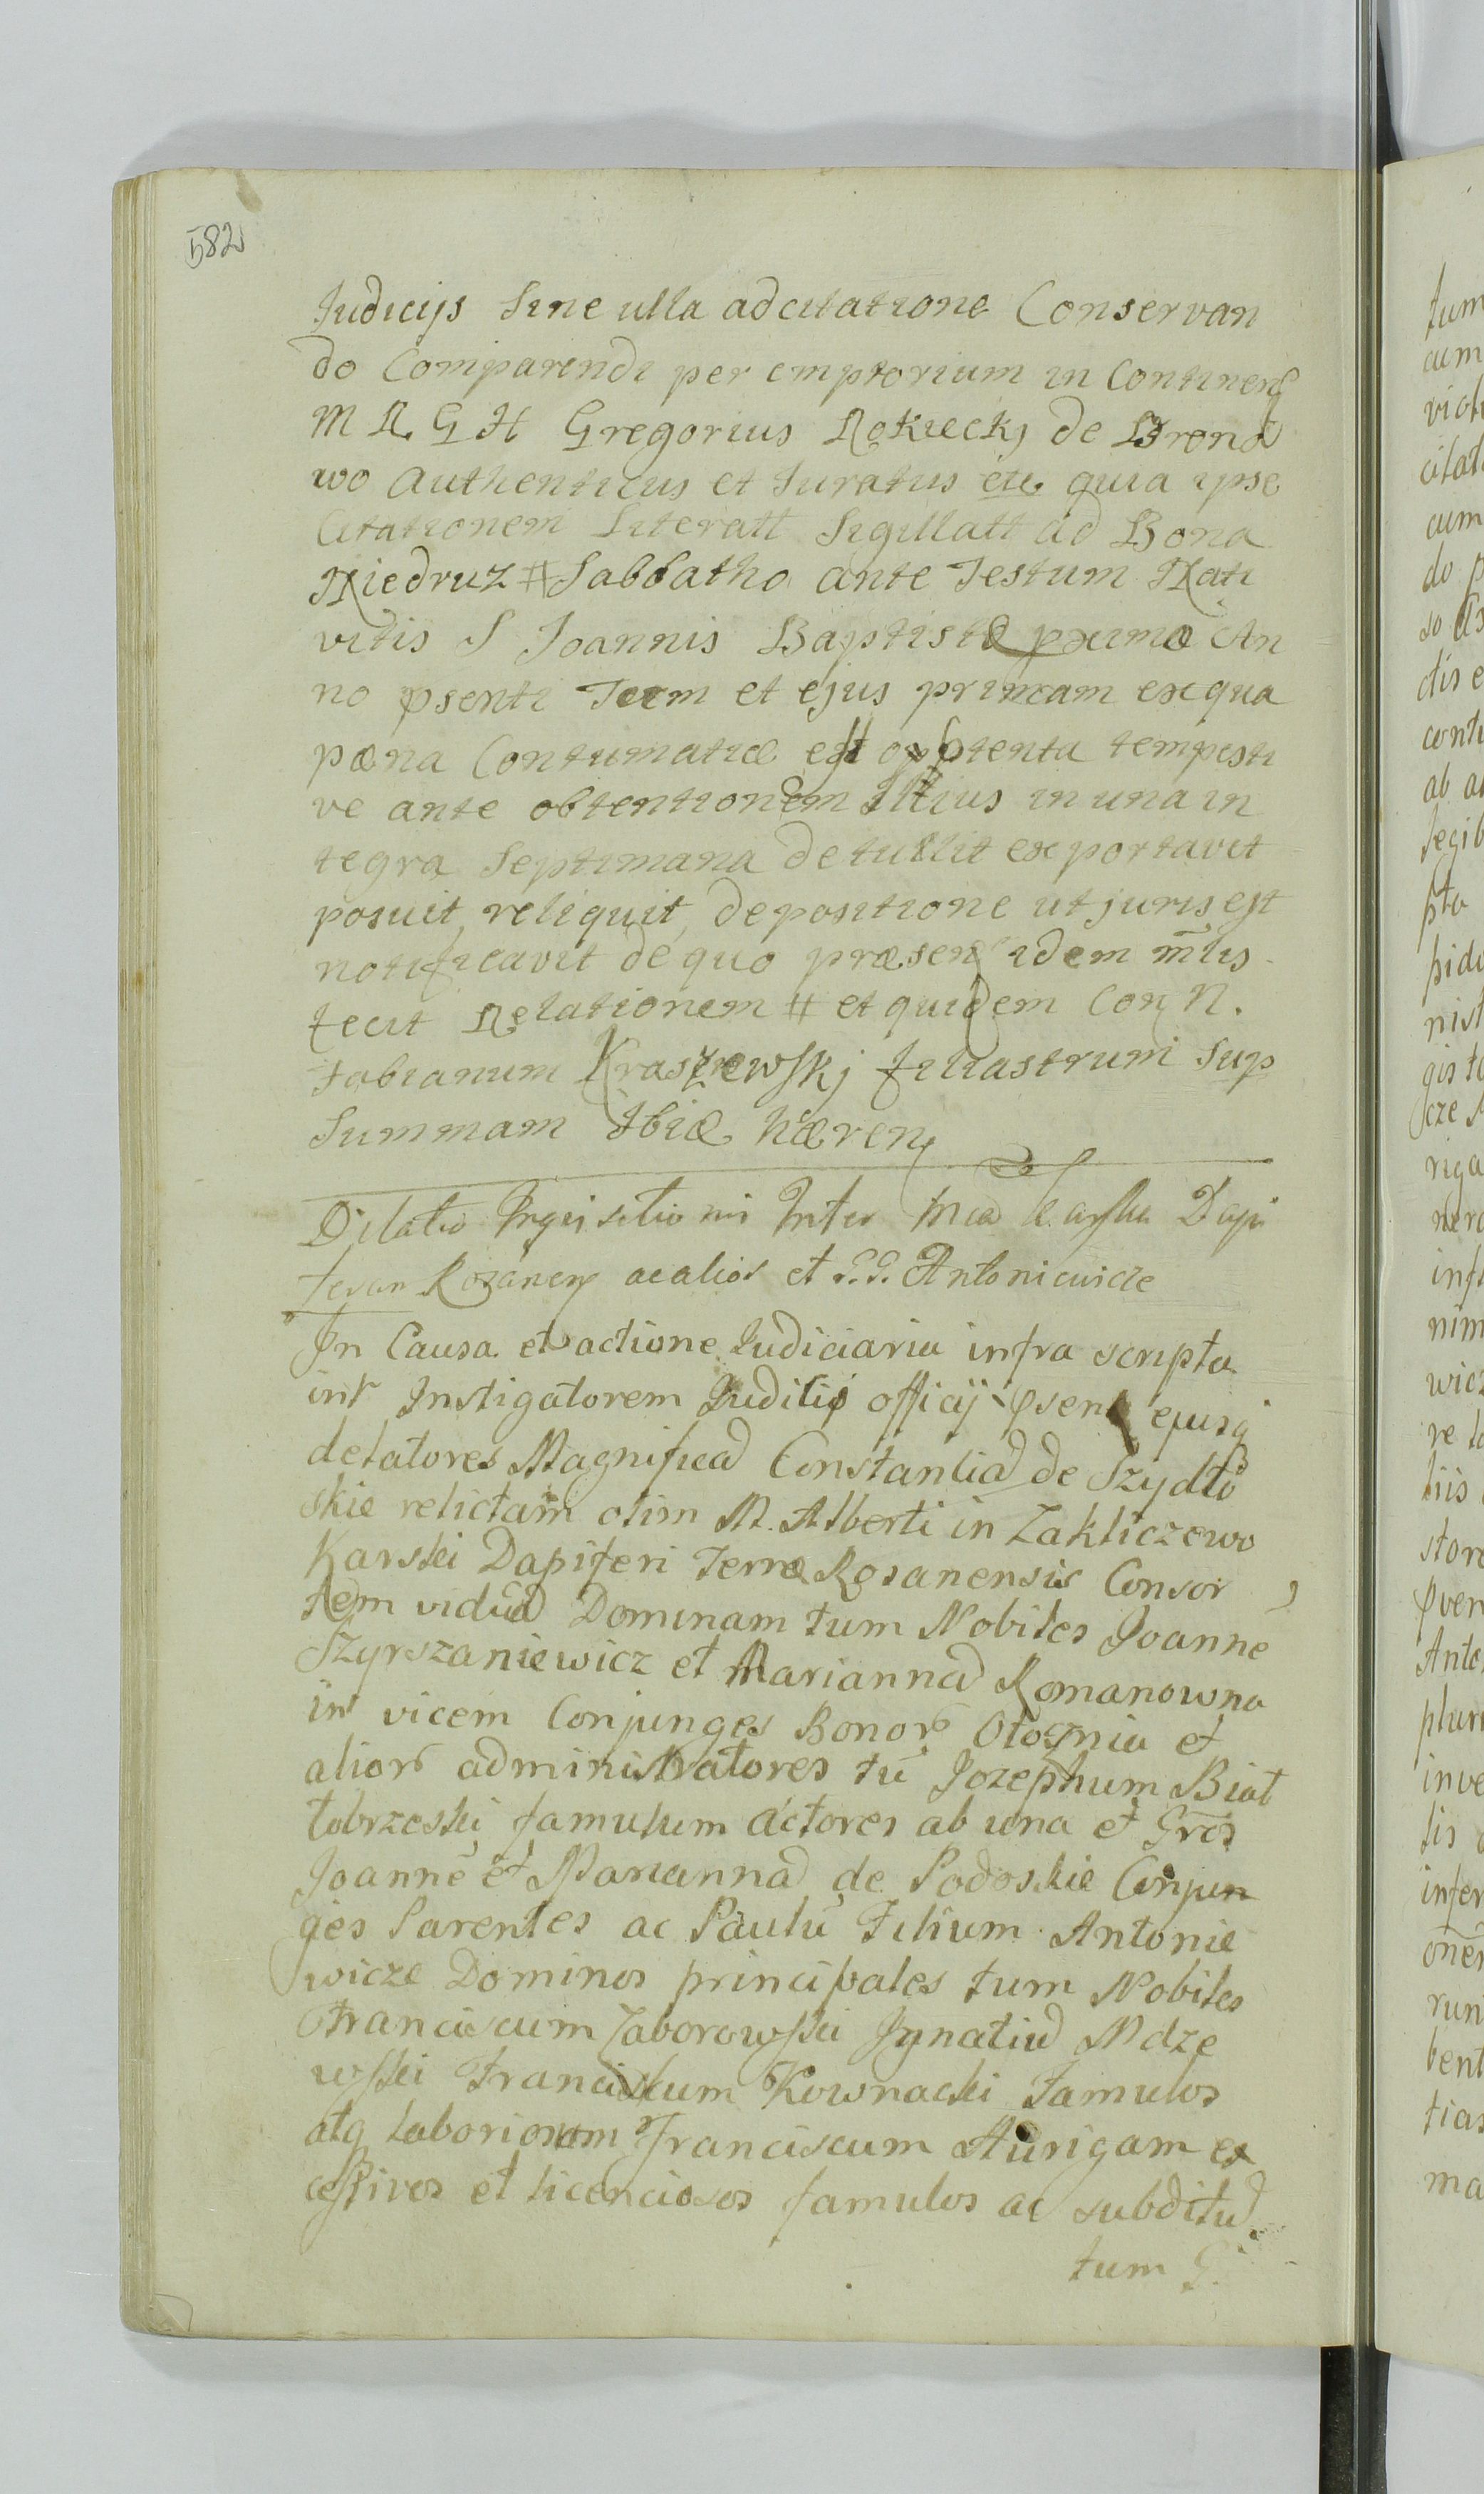 582
Judicijs Sine ulla adcitatione Conservan
do Comparendi per emptorium in Continen
M R G H Gregorius Rokicckj de
wo Authenticus et Juratus etc quia ipse
Citationem Literatt Sigillatt ad Bona
Niedruz # Sabbatho ante Festum Nati
vitis S Joannis Baptistæ pximæ An
no psenti et ejus primam ex qua
pæna Contumatiæ est optenta tempesti
ve ante obtentionem Illius in una in
tegra Septimana detullit exportavit
posuit, reliquit, depositione ut juris est
notificavit de quo præsen idem mlis
fecit Relationem # et quidem Con N.
Fabianum Kraszewskj filiastrum Sup
Summam Ibiæ hæren
Dilatio Inquisitionis Inter Mca Karska Dapi
feram Rozanen ac alios et G.G. Antoniewicze
In Causa et actione Judiciaria infra scripta
int Instigatorem Juditij officij psen ejusq
delatores Magnificā Constantiā de Szydło
skie relictam olim M. Alberti in Zakliczewo
Karski Dapiferi Terræ Rosanensis Consor
tem viduā Dominam tum Nobiles Joannē
Szyrszaniewicz et Mariannā Romanowna
in vicem Conjunges Bonor et
alior administratores tū Jozephum Biał
łobrzeski famulum actores ab una et Gros
Joannē et Mariannā de Podoskie Conjun
ges Parentes ac Paulū Filium Antonie
wicze Dominos principales tum Nobiles
Franciscum Zaborowski Ignatiū Mdze
wski Franciscum Kownacki Famulos
atq laboriosum Franciscum Aurigam ex
cessivos et licenciosos famulos ac subditū
tum G.